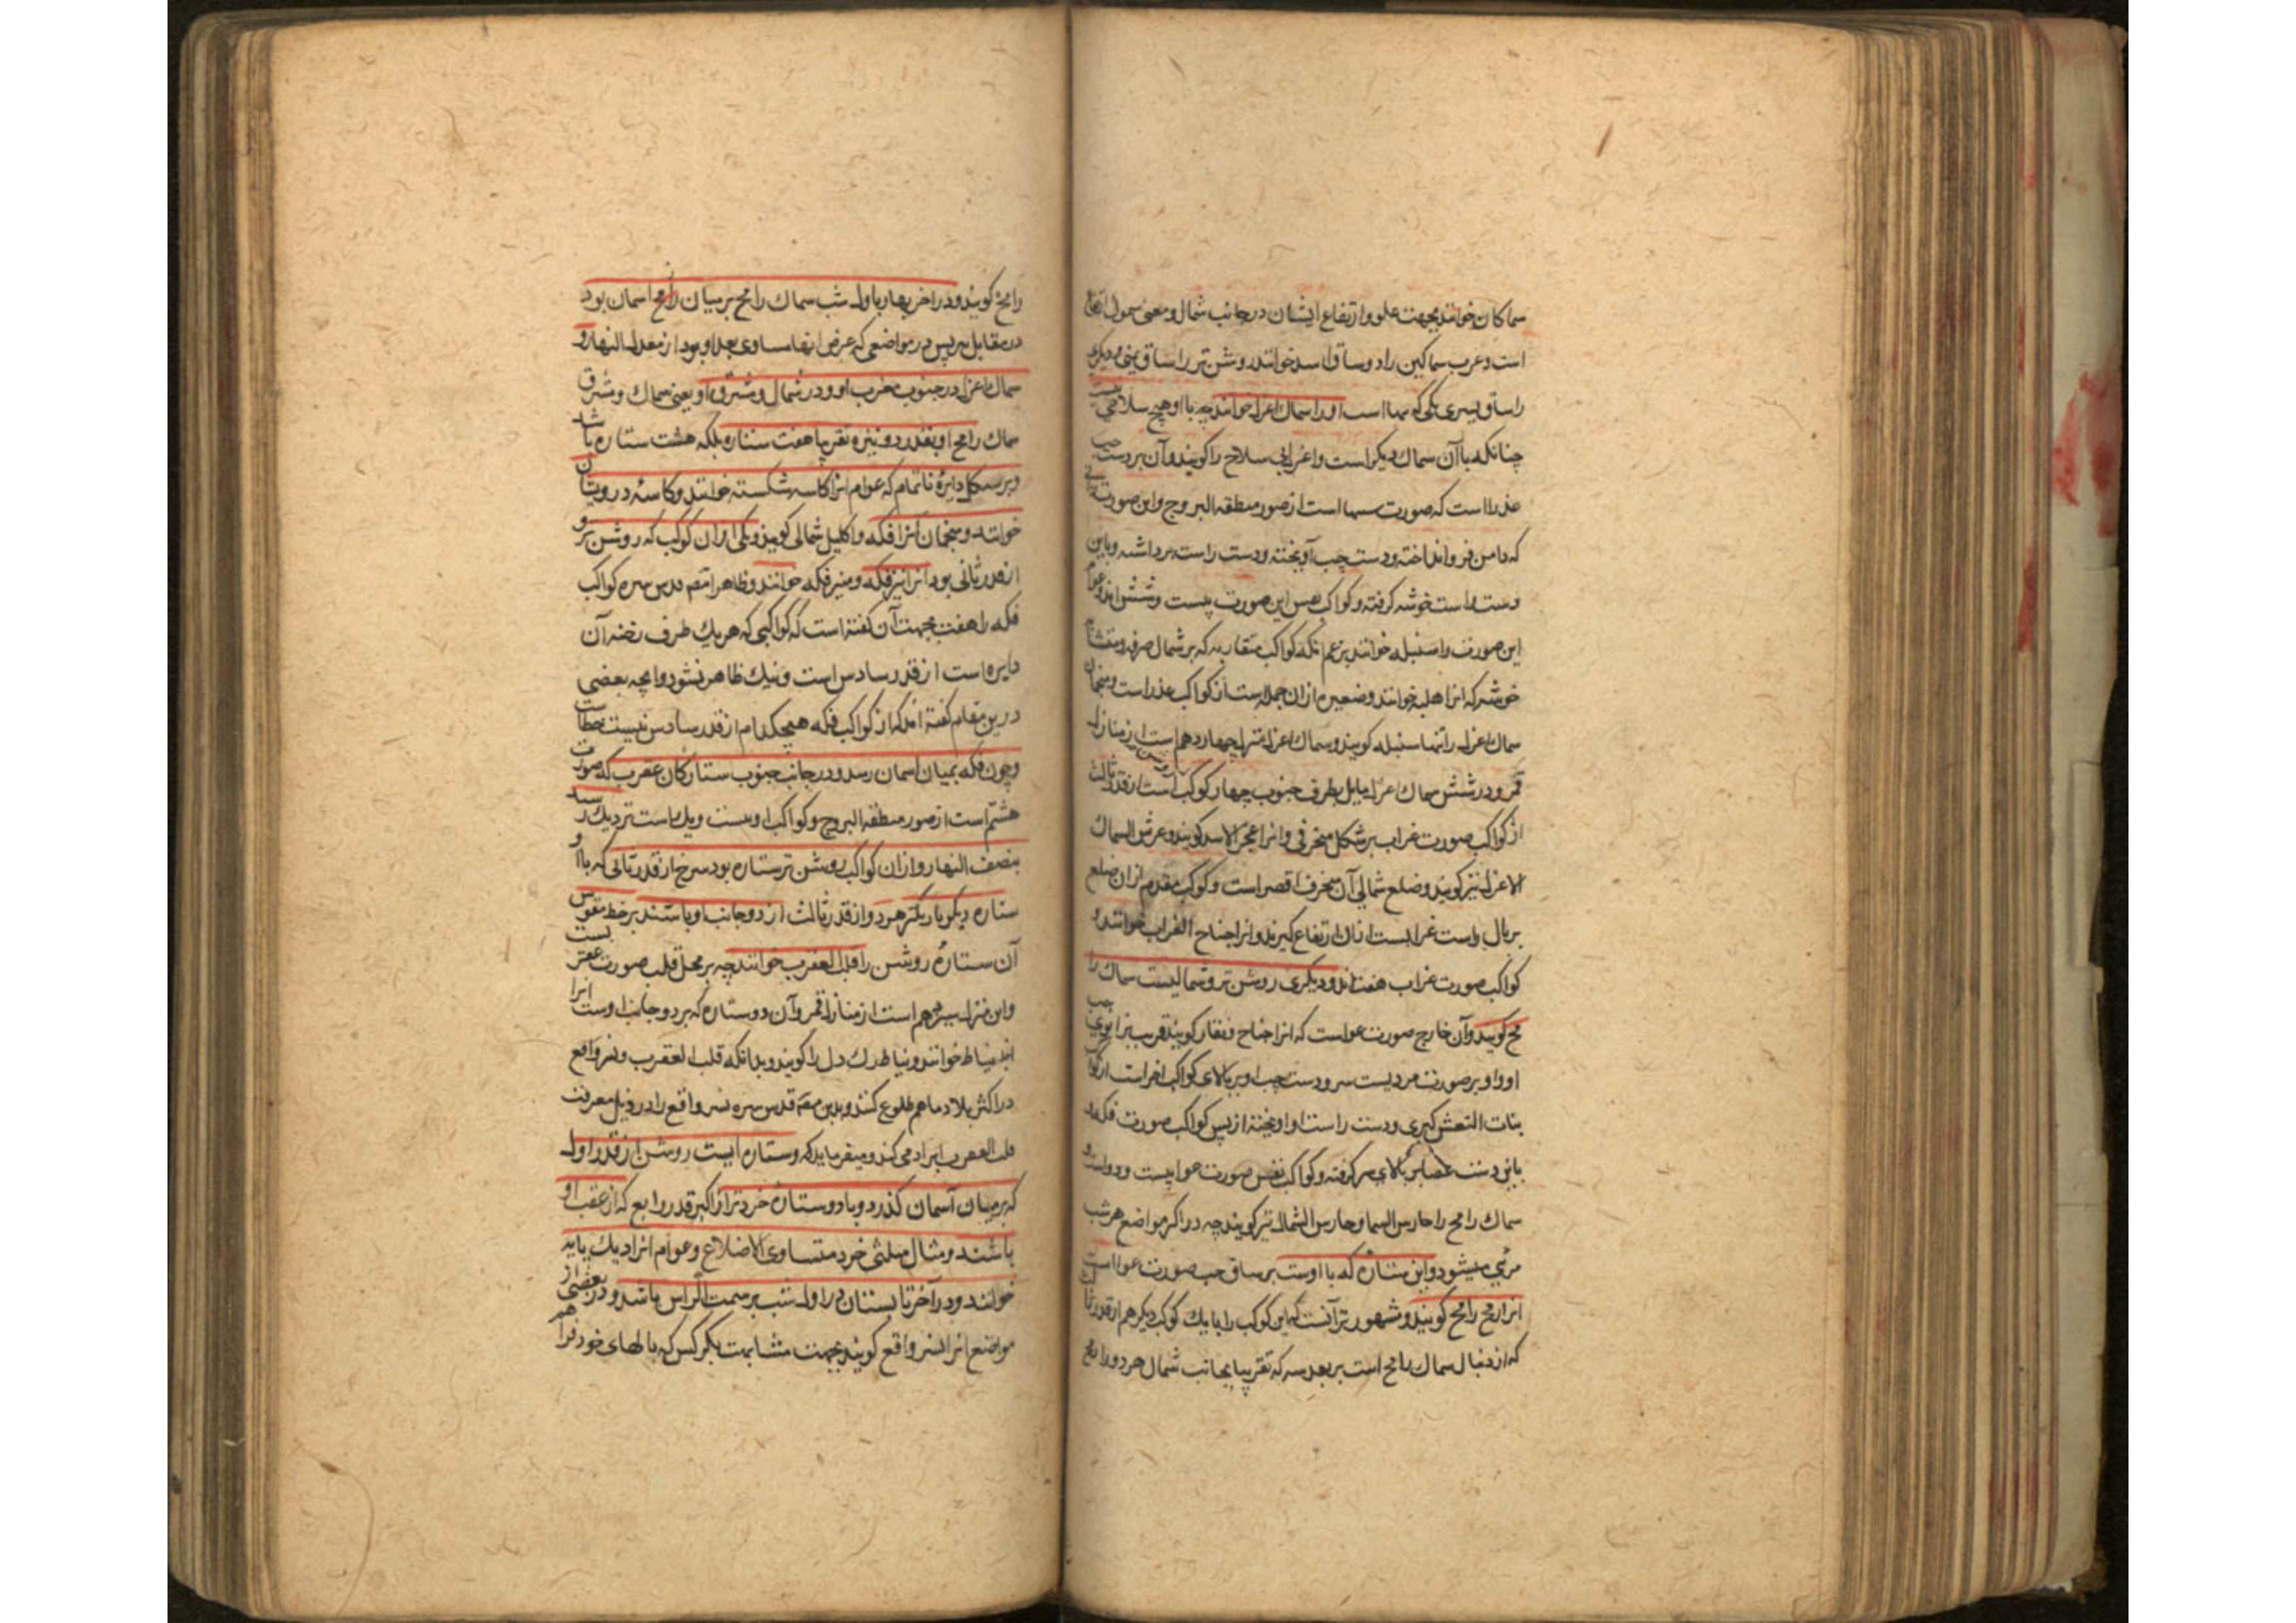 سماکان خوانند بجهت علو و ارتفاع ایشان در جانب شمال و معنی سموک ارتفاع
است و عرب سماکین را دو ساق اسد خوانند روشن‌تر را ساق یمنی و دیگری
را ساق یسری یکی که است او را سماک اعزل خوانند چه با او هیچ سلاحی نیست
چنانکه با آن سماک دیگر است و اعزل بی سلاح را گویند و آن بر دست چپ
عذرا است که صورت است از صور منطقه البروج و این صورت
که دامن فرو انداخته و دست چپ آویخته و دست راست برداشته و باین
دست راست خوشه گرفته و کواکب این صورت بیست و شش اند و عوام
این صورت را سنبله خوانند بزعم آنکه کواکب متقاربه که بر شمال صرفه و
خوشه که انرا هلبه خوانند و ضعیره از ان جمله است از کواکب عذر است و منجمان
سماک اعزل را تنها سنبله گویند و سماک اعزل منزل چهاردهم است از منازل
قمر و در سماک اعزل مایل بطرف جنوب چهار کوکب است از قدر ثالث
از کواکب صورت غراب بر شکل منحرفی و انرا عجز الاسد گویند و عرش السماک
الاعزل نیز گویند و ضلع شمالی آن منحرف اقصر است و کوکب مقدم از ان ضلع
بر بال راست غرابست از ان ارتفاع گیرند و انرا جناح الغراب خوانند و
کواکب صورت غراب هفت اند و دیگری روشن تر و شمالیست سماک را
مح گویند و آن خارج صورت عواست که انرا صیاح و نقار گویند قریب بزانوی چپ
او و او بر صورت مردیست سر و دست چپ او بر بالای کواکب اخر است از کواکب
بنات النعش کبری و دست راست او اویخته از پس کواکب صورت فکه
باین دست عصا بر بالای سر گرفته و کواکب نفس صورت عوا بیست و دو است و
سماک رامح را حارس السما و حارس الشمال نیز گویند چه در اکثر مواضع هر شب
مرئی میشود و این ستاره که با اوست بر ساق چپ صورت عوا است
انرا رمح رامح گویند و مشهورتر آنست که این کوکب را با یک کوکب دیگر هم از قدر
که از دنبال سماک رامح است بر بعد سه که تقریبا بجانب شمال هر دو را رمح
رامح گویند و در اخر بهار باول شب سماک رامح بر میان رامح اسمان بود
در مقابل سر پس در مواضعی که عرض انها مساوی بعد او بود از معدل النهار و
سماک اعزل در جنوب مغرب او و در شمال و مشرق او یعنی سماک و مشرق
سماک رامح او بقدر دو نیزه تقریبا هفت ستاره بلکه هشت ستاره باشد
و بر شکل دایره ناتمام که عوام انرا کاسه شکسته خوانند و کاسه درویشان
خوانند و منجمان انرا فکه و اکلیل شمالی گویند و یکی از ان کوکب که روشن تر و
از قدر ثانی بود انرا نیز فکه و منیر فکه خوانند و ظاهرا قدس سره کواکب
فکه را هفت بجهت آن گفته است که کواکبی که هر یک طرف رخنه آن
دایره است از قدر سادس است و نیک ظاهر نشود و انچه بعضی
درین مقام گفته اند که از کواکب فکه هیچکدام از قدر سادس نیست خطاست
و چون فکه بمیان اسمان رسد و در جانب جنوب ستارگان عقرب که صورت
هشتم است از صور منطقه البروج و کواکب او بیست و یک است نزدیک رسد
بنصف النهار و از ان کواکب روشن تر ستاره بود سرخ از قدر ثانی که با او
ستاره دیگر باریکتر هر دو از قدر ثالث از دو جانب او باشند بر خط مقوس
آن ستاره روشن را قلب العقرب خوانند چه بر محل قلب صورت عقربست
و این منزل هم است از منازل قمر و آن دو ستاره که بر دو جانب اوست انرا
نیاط خوانند و نیاط رگ دل را گویند و بدانکه قلب العقرب و نسر واقع
در اکثر بلاد ما هم طلوع کنند و قدس سره نسر واقع را در ذیل معرفت
قلب العقرب ایراد می کند و میفرماید که و ستاره ایست روشن از قدر اول
که بر میان آسمان گذرد و با دو ستاره خردتر از اکبر قدر رابع که از عقب او
باشند و مثال مثلثی خرد متساوی الاضلاع و عوام انرا دیک پایه
خوانند و در آخر تابستان در اول شب بر سمت الراس باشد و در بعضی از
مواضع انرا نسر واقع گویند بجهت مشابهت بکرکس که بالهای خود فرا هم